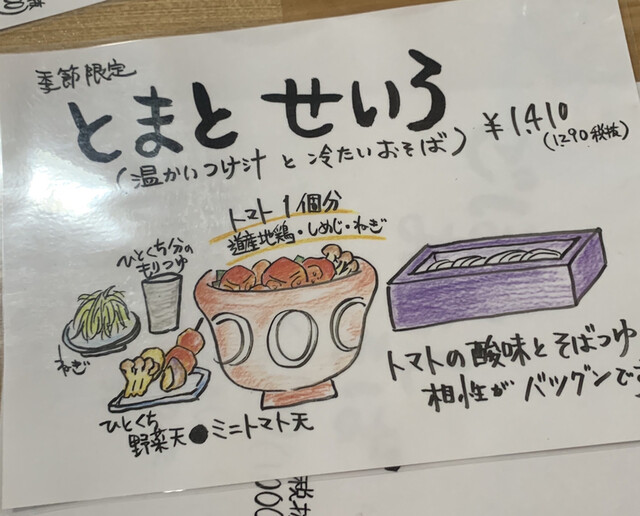 季節限定
とまと せいろ
¥1,410
(1290税抜)
(温かいつけ汁 と 冷たいおそば)
トマト1個分
道産地鶏・しめじ・ねぎ
ひとくち分の
もりつゆ
ねぎ
ひとくち
野菜天●ミニトマト天
トマトの酸味とそばつゆ
相性がバツグンです
税抜
000